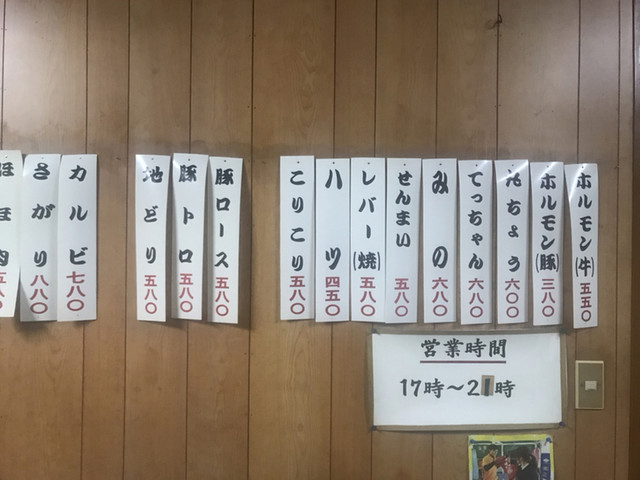 ホルモン(牛) 五五〇
ホルモン(豚) 三八〇
んちょう 六〇〇
てっちゃん 六八〇
みの 六八〇
せんまい 五八〇
レバー(焼) 五八〇
ハツ 四五〇
こりこり 五八〇
豚ロース 五八〇
豚トロ 五八〇
地どり 五八〇
カルビ 七八〇
さがり 八八〇
ほほ肉 五八〇
営業時間
17時～21時